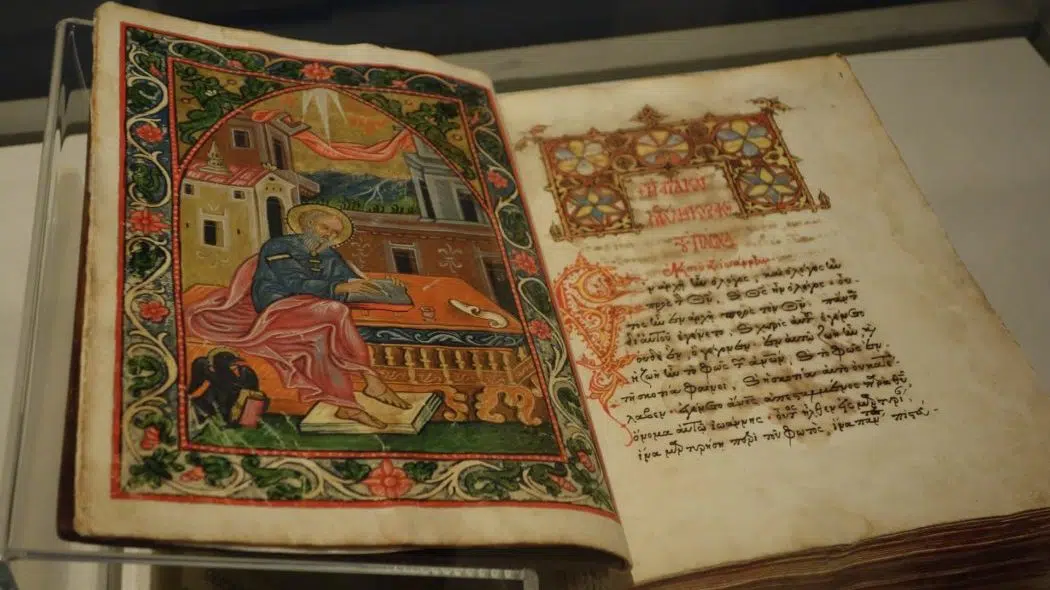 ν ἀρχῇ ἦν ὁ λόγος, καὶ ὁ λόγος ἦν
πρὸς τὸν θν, καὶ θς ἦν ὁ λόγος· οὗ-
τος ἦν ἐν ἀρχῇ πρὸς τὸν θν. πάντα
δι' αὐτοῦ ἐγένετο, καὶ χωρὶς αὐτοῦ ἐγένετο
οὐδὲ ἓν ὃ γέγονεν. ἐν αὐτῷ ζωὴ ἦν, καὶ
ἡ ζωὴ ἦν τὸ φῶς τῶν ἀνων. καὶ τὸ φῶς ἐν
τῇ σκοτίᾳ φαίνει, καὶ ἡ σκοτία αὐτὸ οὐ κατέ
λαβεν. ἐγένετο ἄνος ἀπεσταλμένος παρὰ θυ
ὄνομα αὐτῷ ἰωάννης. οὗτος ἦλθεν εἰς μαρτυρί
ἵνα μαρτυρήσῃ περὶ τοῦ φωτός, ἵνα πάντες πιστεύ-